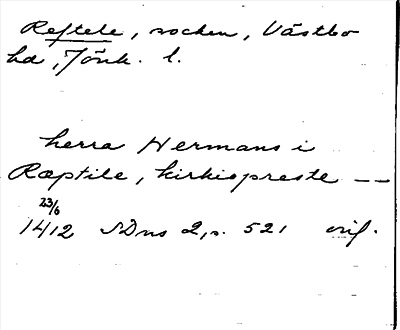 Reftele, socken, Västbo
hd, Jönk. l.
herra Hermans i
Ræptile, kirkiopreste --
23/6
1412 SDns 2, s. 521 orig.